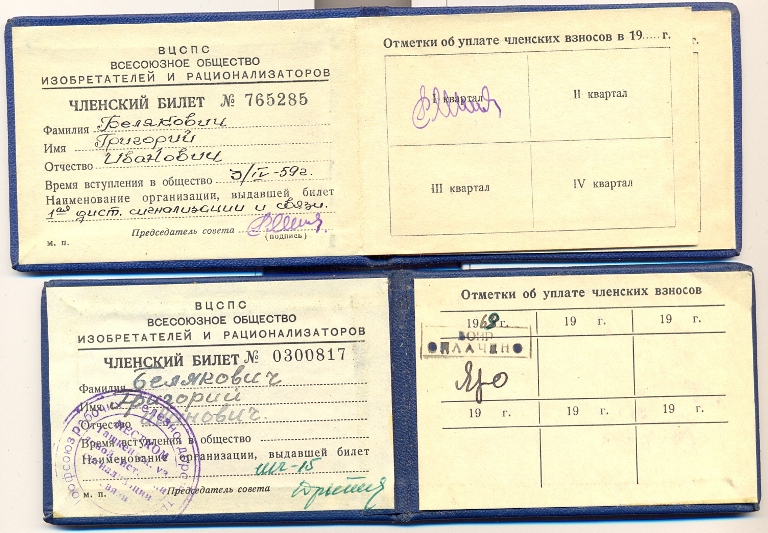 ВЦСПС
ВСЕСОЮЗНОЕ ОБЩЕСТВО
ИЗОБРЕТАТЕЛЕЙ И РАЦИОНАЛИЗАТОРОВ
ЧЛЕНСКИЙ БИЛЕТ № 765285
Фамилия Белякович
Имя Григорий
Отчество Иванович
Время вступления в общество 3/IV-59г.
Наименование организации, выдавшей билет
1ая дист. сигнализации и связи.
Председатель совета
(подпись)
м. п.
Отметки об уплате членских взносов в 19..... г.
I квартал
II квартал
III квартал
IV квартал
г.
ВЦСПС
ВСЕСОЮЗНОЕ ОБЩЕСТВО
ИЗОБРЕТАТЕЛЕЙ И РАЦИОНАЛИЗАТОРОВ
ЧЛЕНСКИЙ БИЛЕТ № 0300817
Фамилия Белякович
Имя Григорий
Отчество Иванович
Время вступления в общество
Наименование организации, выдавшей билет
шч-15
м. п.
Председатель совета
МЕСТКОМ
Отметки об уплате членских взносов
1968 г.
19 г.
19 г.
ВОИР
ОПЛАЧЕНО
19 г.
19 г.
19 г.